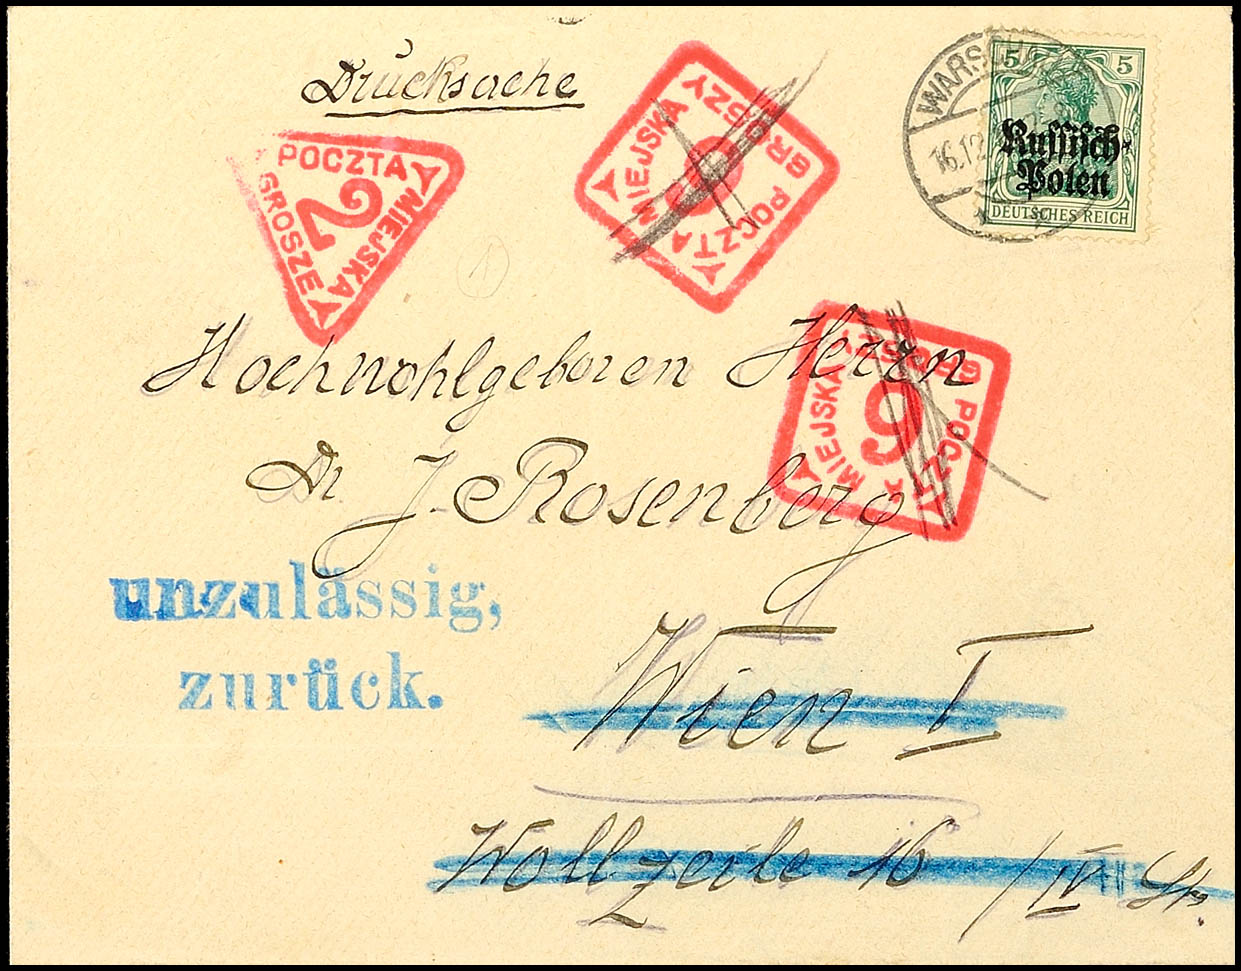 Drucksache
POCZTA MIEJSKA
2
GROSZE
MIEJSKA POCZTA
GROSZY
WARSCH
16.12
5 5
Russisch-
Polen
DEUTSCHES REICH
1
Hochwohlgeboren Herrn
MIEJSKA POCZTA
6
GROSZY
Dr J. Rosenberg
unzulässig,
zurück.
Wien I
Wollzeile 16 / IV St.